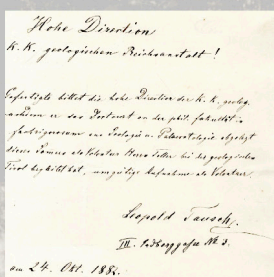 Hohe Direction
K. K. geologischen Reichsanstalt!
Gefertigte bittet die hohe Direction der K. K. geolog.
er das Doctorat an der phil. Fakultät
aus Geologie u. Palaeontologie abgelegt
diesen Sommer als Volontär Herrn Teller bei der geologischen
Tirol begleitet hat, um gütige Aufnahme als Volontär.
Leopold Tausch.
III. № 3.
am 24. Okt. 1884.